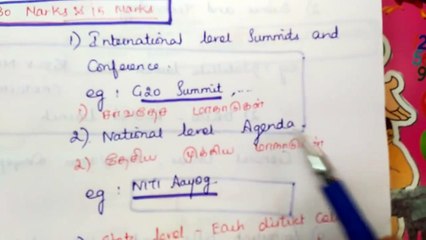 Marks is in Marks
1) International level Summits and
Conference
eg : G20 Summit, ...
1) சர்வதேச மாநாடுகள்
2) National level Agenda
2) தேசிய முக்கிய மாநாடுகள்
eg : NITI Aayog
level - Each district